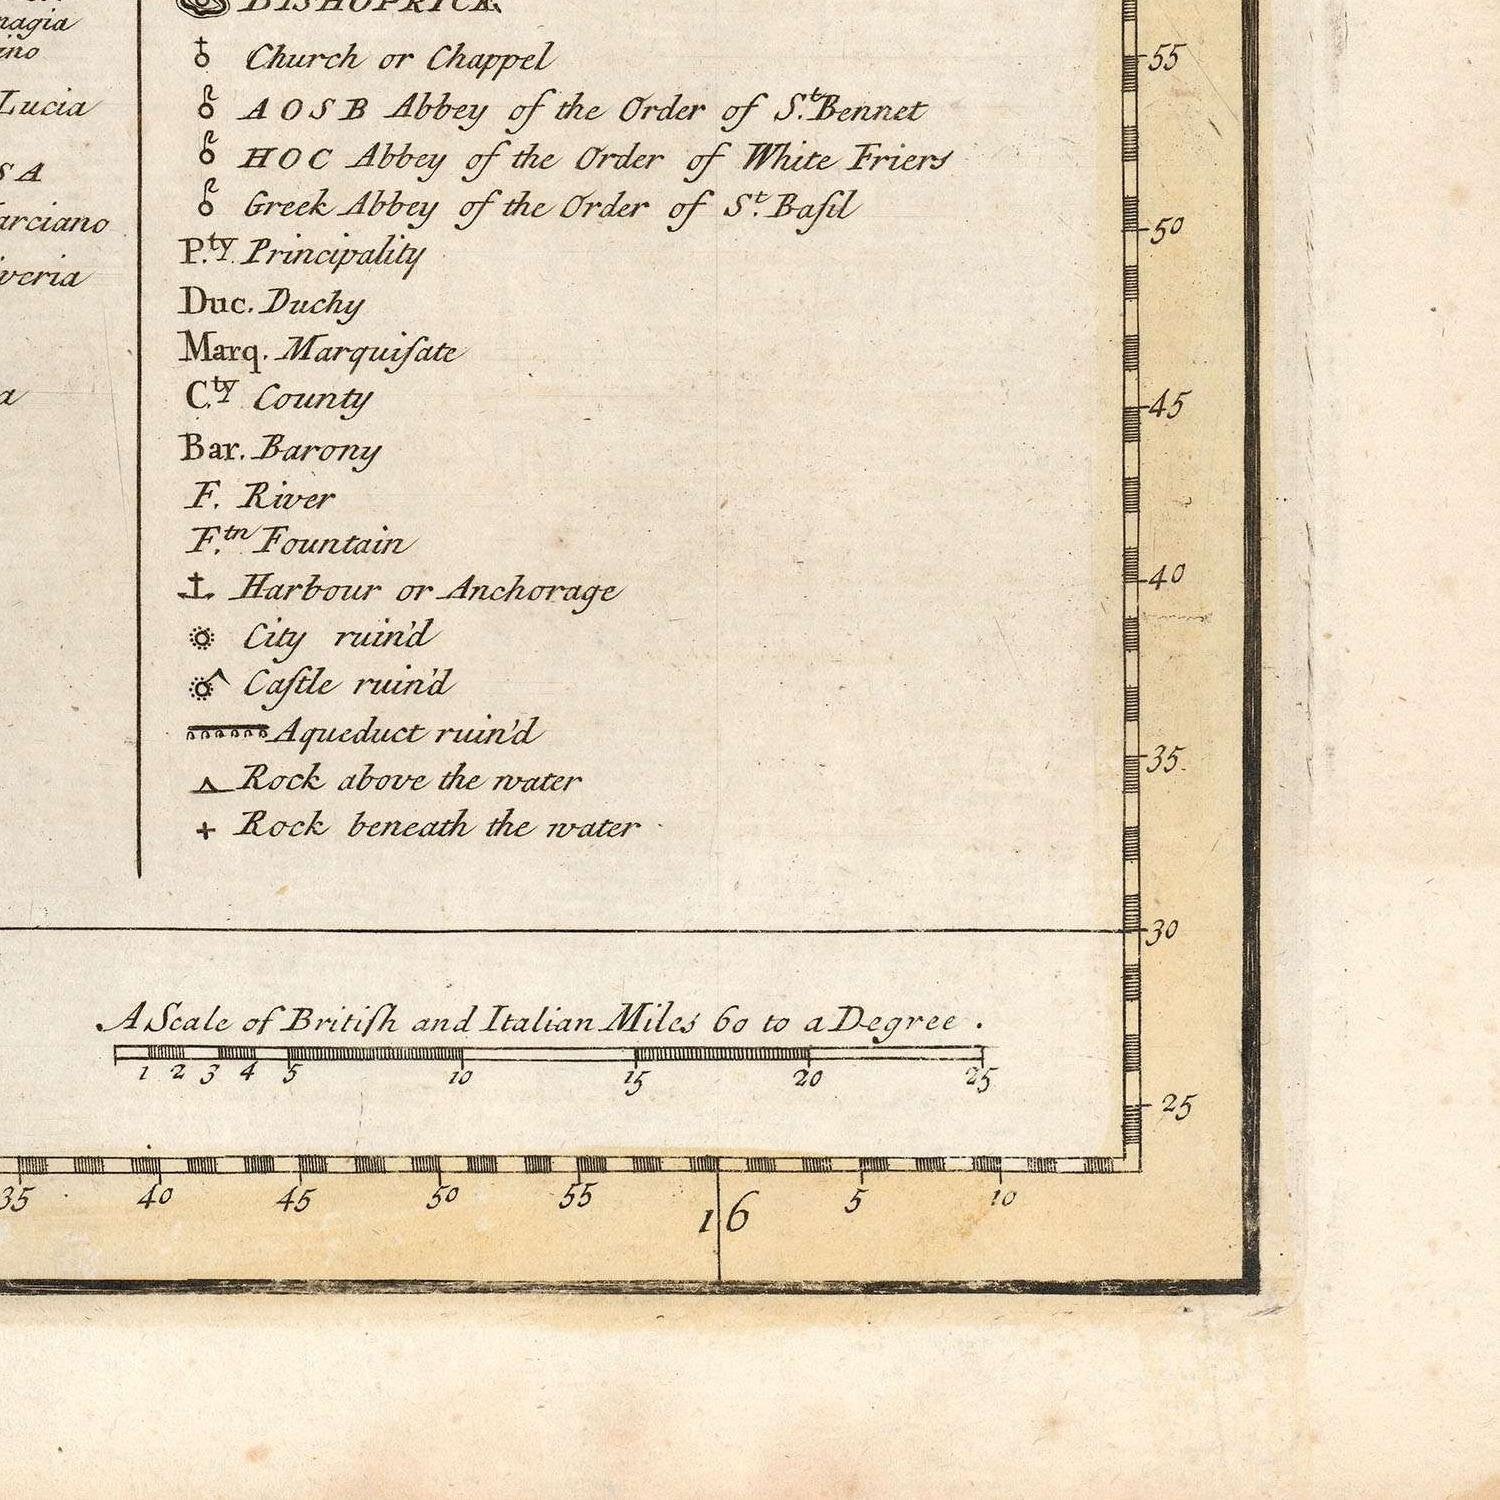 magia
ino
Lucia
SA
arciano
veria
a
BISHOPRICK
Church or Chappel
A O S B Abbey of the Order of S.t Bennet
H O C Abbey of the Order of White Friers
Greek Abbey of the Order of S.t Baſil
P.ty Principality
Duc. Duchy
Marq. Marquiſate
C.ty County
Bar. Barony
F. River
F.tn Fountain
Harbour or Anchorage
City ruin'd
Caſtle ruin'd
Aqueduct ruin'd
Rock above the water
Rock beneath the water
A Scale of Britiſh and Italian Miles 60 to a Degree .
1 2 3 4 5 10 15 20 25
55
50
45
40
35
30
25
35 40 45 50 55 16 5 10